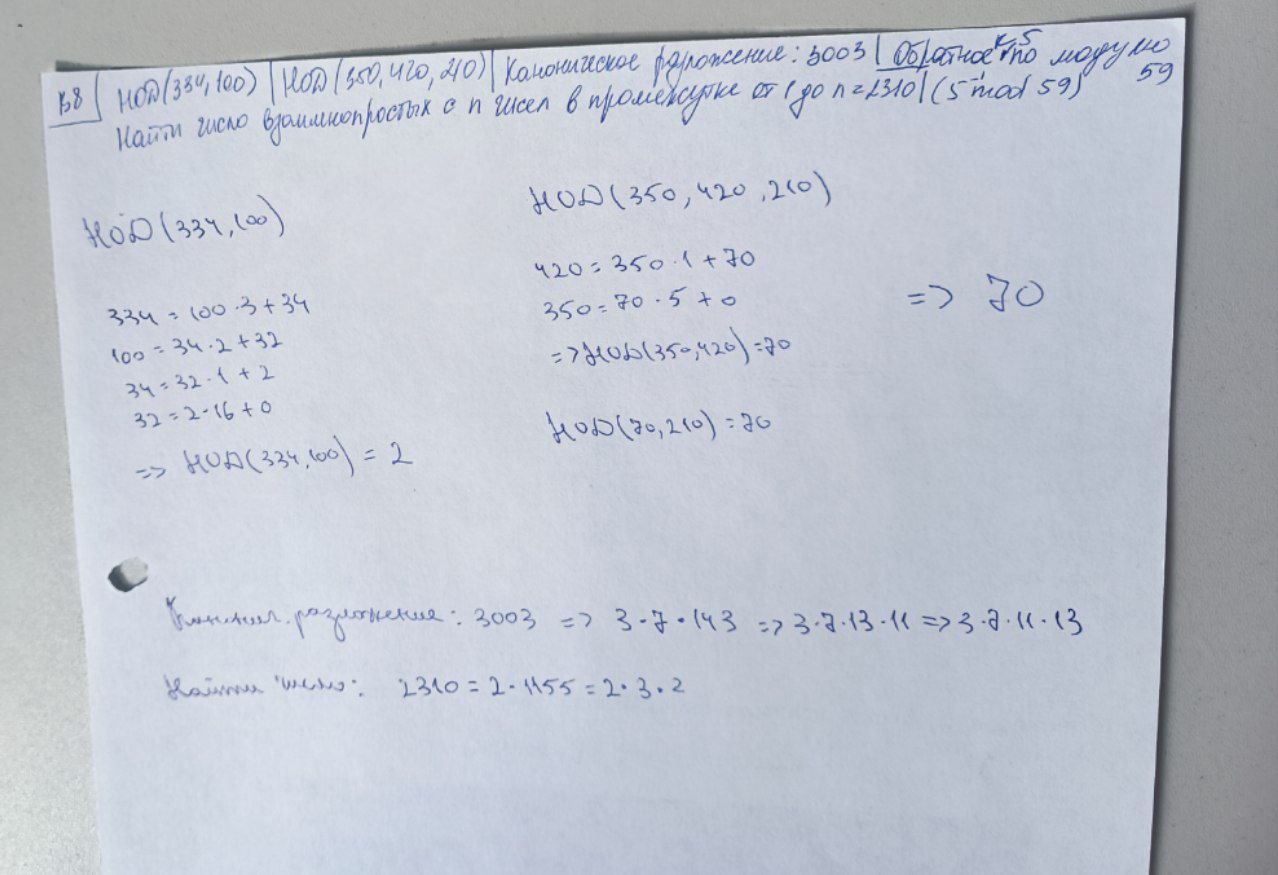 В8 | НОД(334,100) | НОД(350,420,210) | Каноническое разложение: 3003 | Обратное к 5 по модулю 59
Найти число взаимнопростых с n чисел в промежутке от 1 до n=2310 | (5⁻¹ mod 59)
НОД(334,100)
334 = 100·3+34
100 = 34·2+32
34 = 32·1+2
32 = 2·16+0
=> НОД(334,100) = 2
НОД(350,420,210)
420 = 350·1+70
350 = 70·5+0
=> НОД(350,420)=70
НОД(70,210)=70
=> 70
Канонич. разложение: 3003 => 3·7·143 => 3·7·13·11 => 3·7·11·13
Найти число: 2310 = 2·1155 = 2·3·2